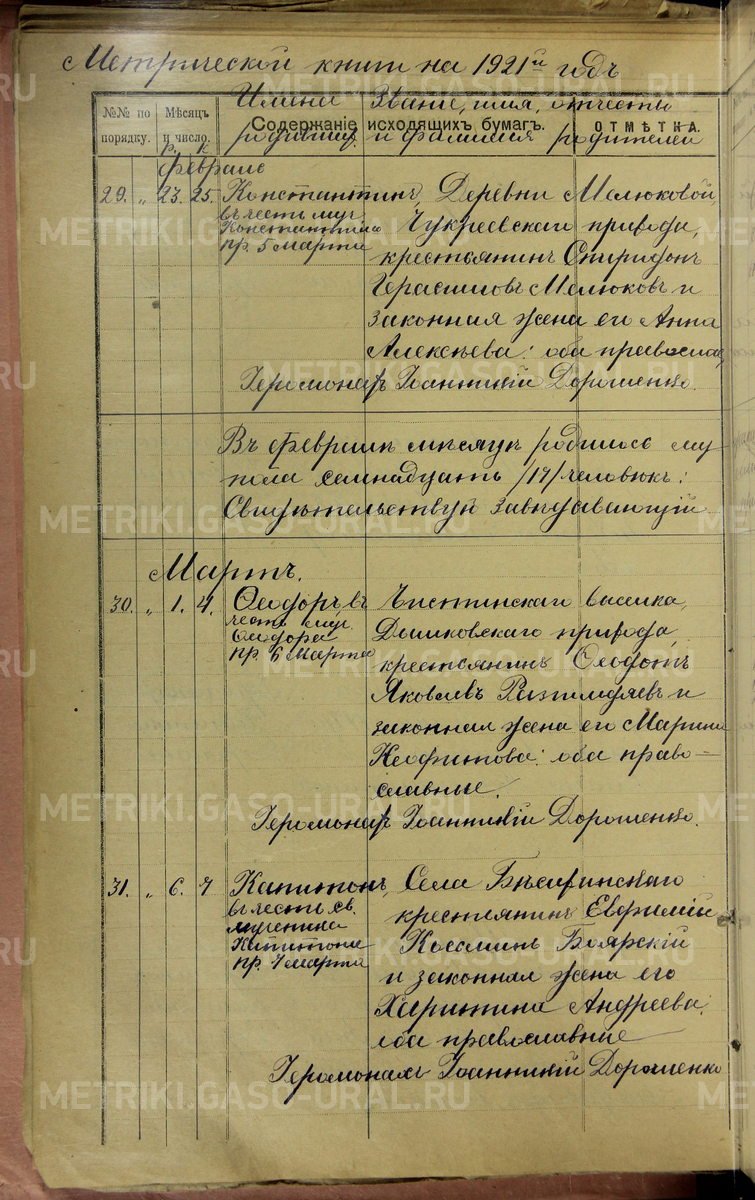 Метрической книги на 1921й годъ
№№ по порядку.
Мѣсяцъ и число.
Содержаніе исходящихъ бумагъ.
ОТМѢТКА.
Имена родивш.
Званіе, имя, отчество
и фамилія родителей
р. к
Февраль
29. " 23. 25. Константинъ, Деревни Мелюковой,
въ честь муч. Чукреевскаго прихода,
Константина
пр. 5 марта
крестьянинъ Спиридонъ
Герасимовъ Мелюковъ и
законная жена его Анна
Алексѣева: оба православ
Іеромонахъ Іоанникій Дорошенко.
Въ февралѣ мѣсяцѣ родилось му
пола семнадцать /17/ человѣкъ:
Свидѣтельствуй завѣдывающій
Мартъ.
30. " 1. 4. Ѳеодоръ, въ
честь муч.
Ѳеодора
пр. 6 Марта
выселка,
прихода,
крестьянинъ Ѳеодотъ
Яковлевъ и
законная жена его Марина
Неофитова: оба право-
славные.
Іеромонахъ Іоанникій Дорошенко.
31. " 6. 7 Капитонъ, Села
въ честь св. крестьянинъ Евфимій
мученика
Капитона
пр. 7 марта
Косминъ Боярскій
и законная жена его
Харитина Андреева,
оба православные
Іеромонахъ Іоанникій Дорошенко
METRIKI.GASO-URAL.RU